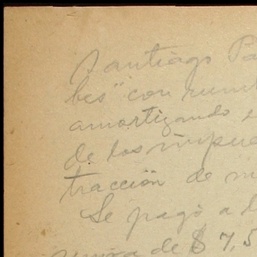 Santiago Pa
bes" con rumb
amortizando e
de los impue
tracción de m
Se pagó a l
suma de $ 7,5